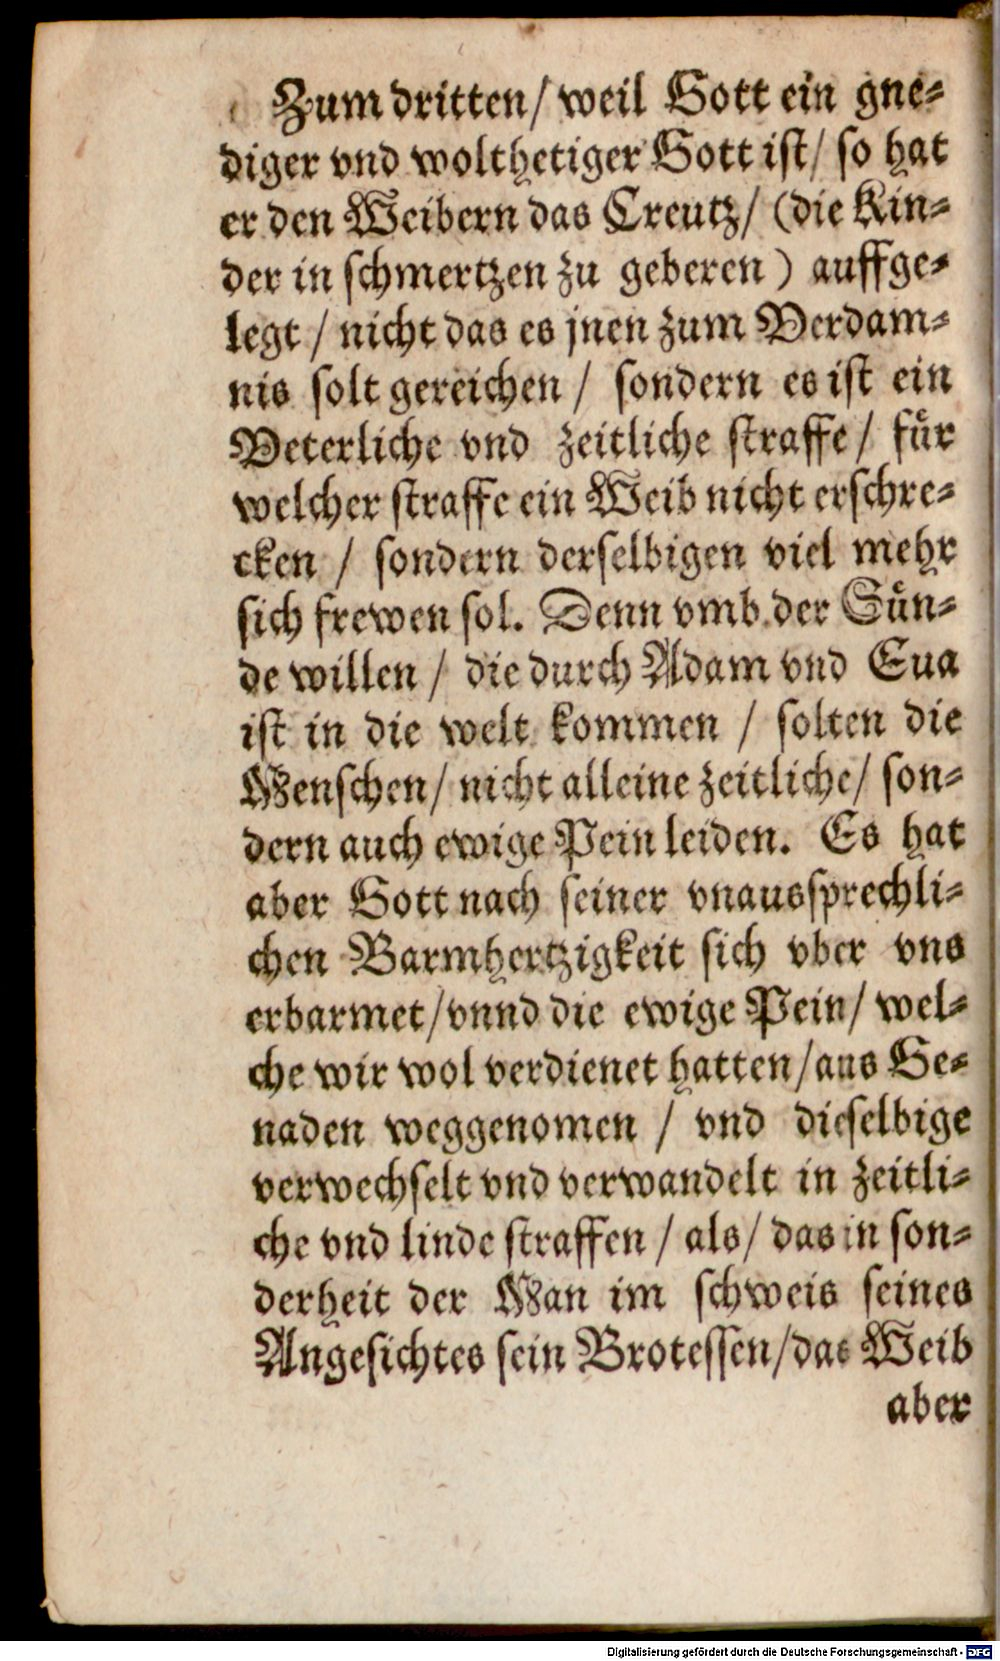 Zum dritten/ weil Gott ein gne⸗
diger vnd wolthetiger Gott ist/ so hat
er den Weibern das Creutz/ (die Kin⸗
der in schmertzen zu geberen) auffge⸗
legt / nicht das es jnen zum Verdam⸗
nis solt gereichen / sondern es ist ein
Veterliche vnd zeitliche straffe / fuͤr
welcher straffe ein Weib nicht erschre⸗
cken / sondern derselbigen viel mehr
sich frewen sol. Denn vmb der Suͤn⸗
de willen / die durch Adam vnd Eua
ist in die welt kommen / solten die
Menschen/ nicht alleine zeitliche/ son⸗
dern auch ewige Pein leiden. Es hat
aber Gott nach seiner vnaussprechli⸗
chen Barmhertzigkeit sich vber vns
erbarmet/vnnd die ewige Pein/ wel⸗
che wir wol verdienet hatten/aus Ge⸗
naden weggenomen / vnd dieselbige
verwechselt vnd verwandelt in zeitli⸗
che vnd linde straffen / als/ das in son⸗
derheit der Man im schweis seines
Angesichtes sein Brotessen/das Weib
aber
Digitalisierung gefördert durch die Deutsche Forschungsgemeinschaft - DFG